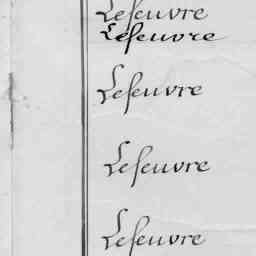 Lefeuvre
Lefeuvre
Lefeuvre
Lefeuvre
Lefeuvre